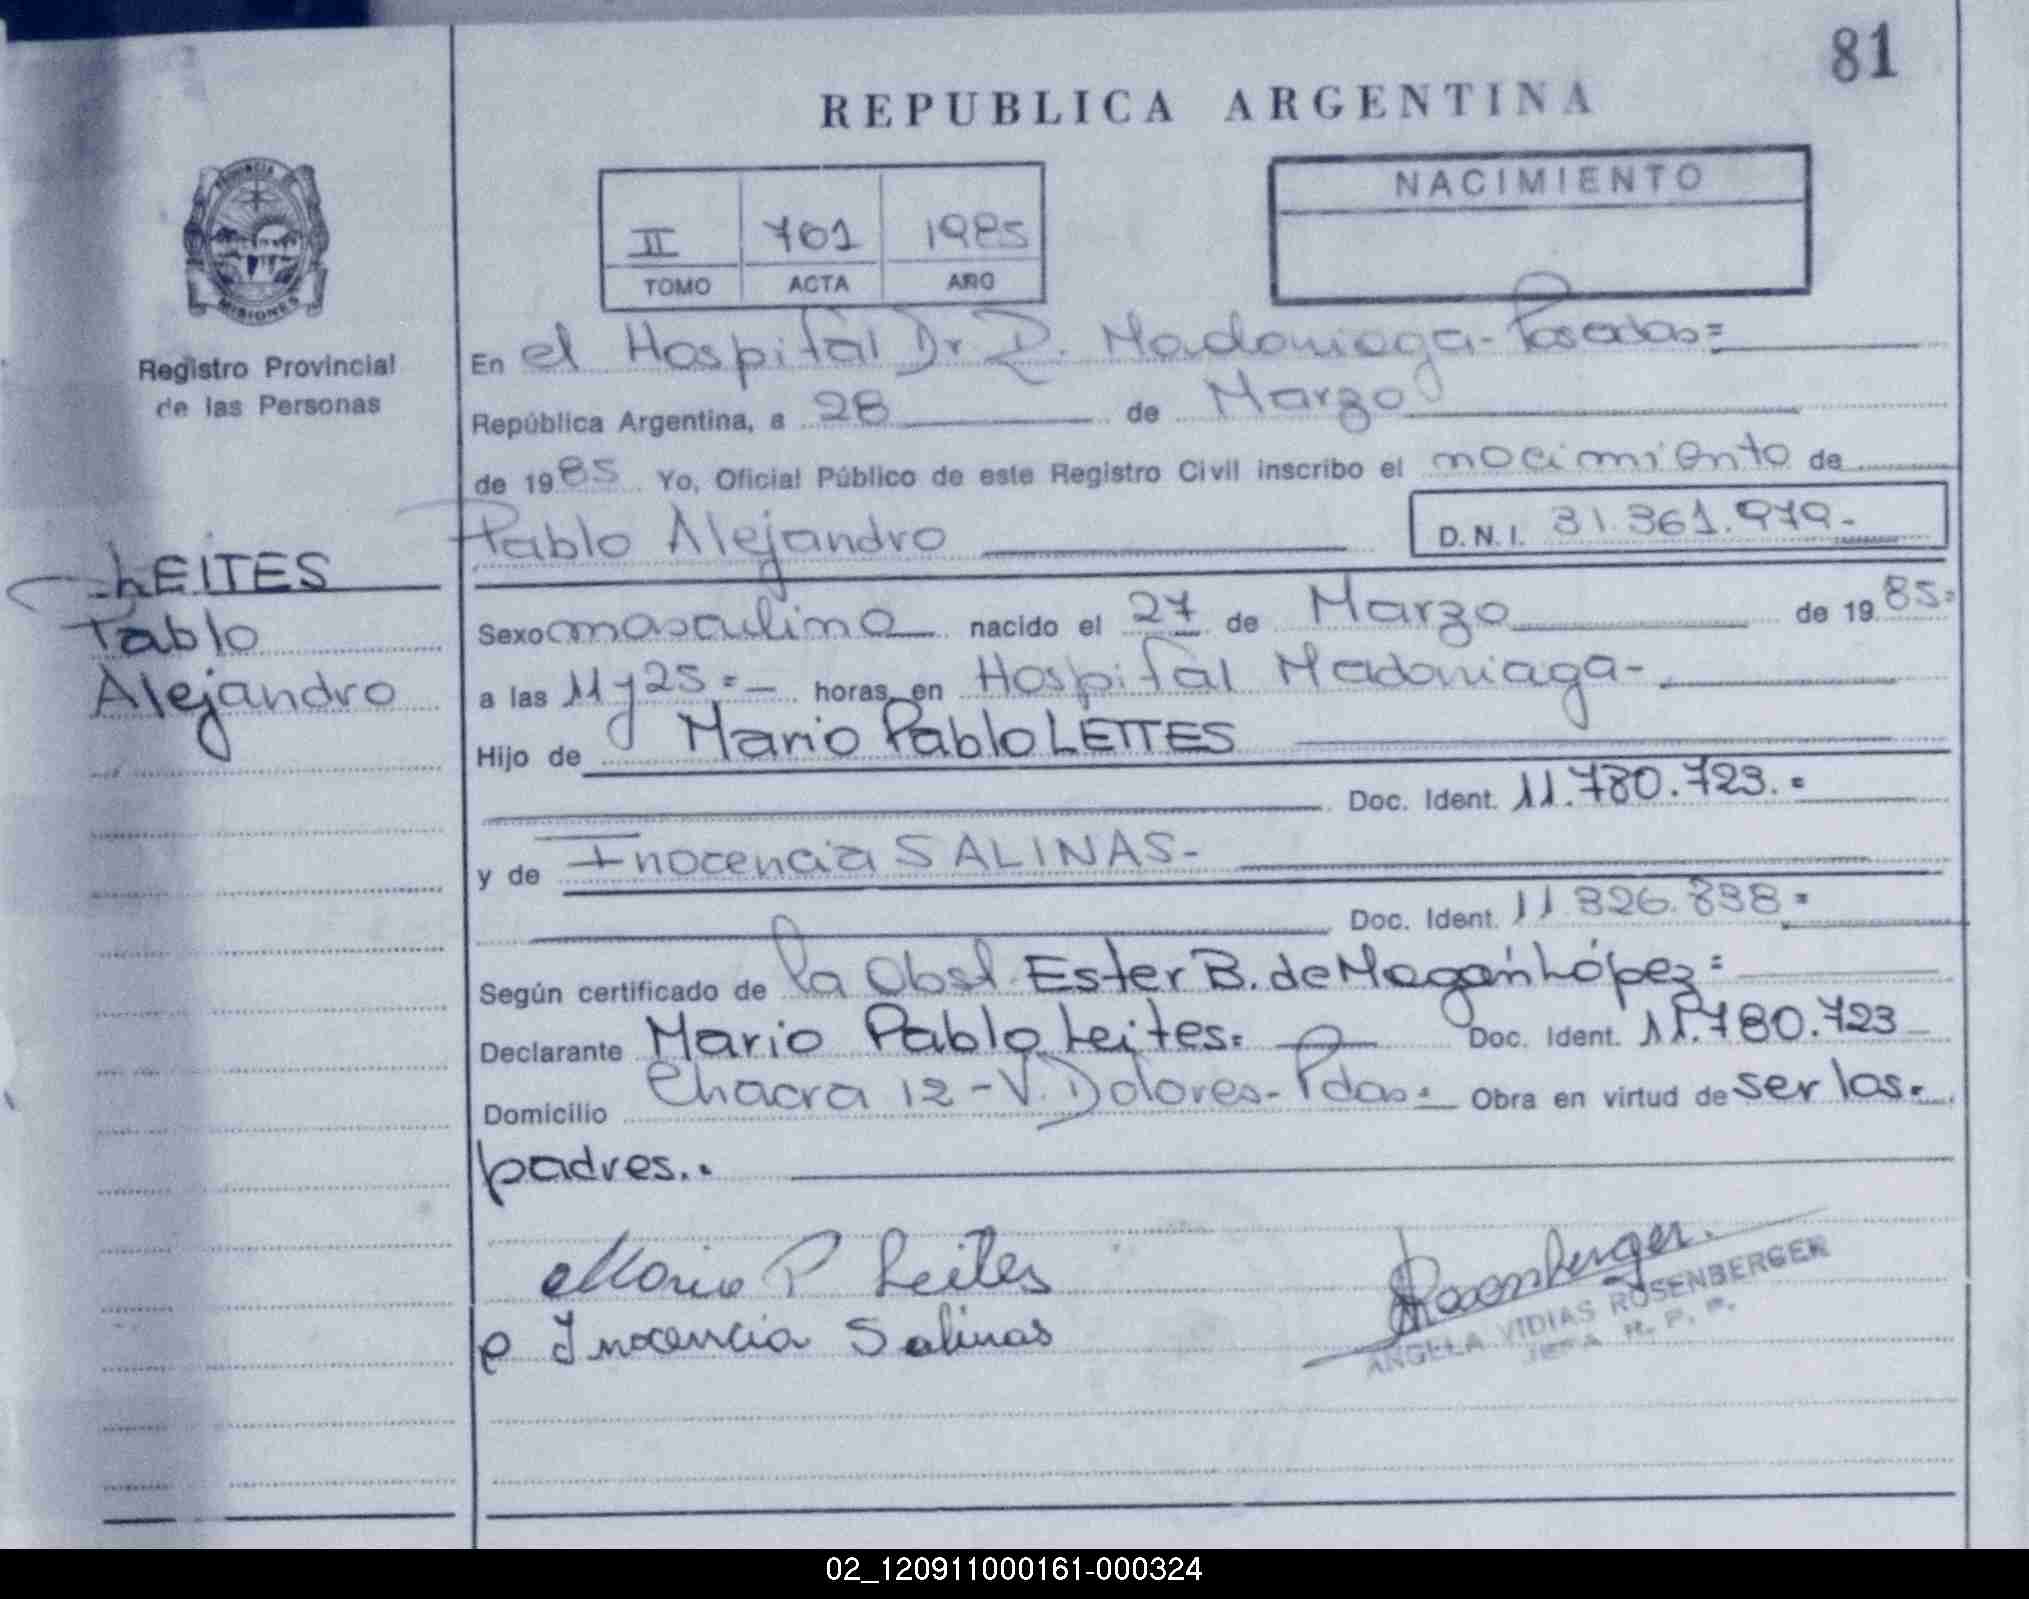 81
REPUBLICA ARGENTINA
PROVINCIA
MISIONES
Registro Provincial
de las Personas
II 701 1985
TOMO ACTA AÑO
NACIMIENTO
En el Hospital Dr. R. Madariaga - Posadas=
República Argentina, a 28 de Marzo
de 1985 Yo, Oficial Público de este Registro Civil inscribo el nacimiento de
Pablo Alejandro D.N.I. 31.361.979.-
LEITES
Pablo
Alejandro
Sexo masculino nacido el 27 de Marzo de 1985=
a las 11 y 25 =- horas, en Hospital Madariaga-
Hijo de Mario Pablo LEITES
Doc. Ident. 11.780.723.=
y de Inocencia SALINAS-
Doc. Ident. 11 326.838=
Según certificado de la Obst. Ester B. de López=
Declarante Mario Pablo Leites= Doc. Ident. 11.780.723
Domicilio Chacra 12 - V. Dolores - Pdas= Obra en virtud de ser los.
padres..
Mario P Leites
Rosenberger.
ANGELA VIDIAS ROSENBERGER
JEFA R. P. P.
Inocencia Salinas
02_120911000161-000324